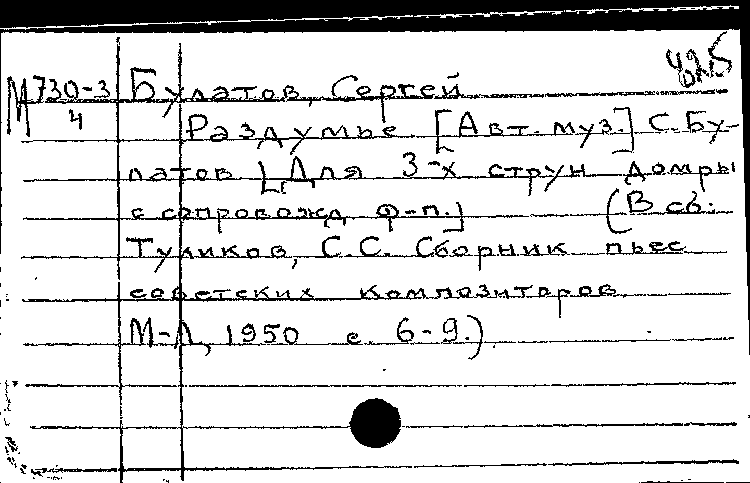 825
М 730-3/4 Булатов, Сергей
Раздумье. [Авт. муз.] С. Бу-
латов [Для 3-х струн домры
с сопровожд. ф-п.] (В сб.:
Туликов, С.С. Сборник пьес
советских композиторов.
М-Л, 1950 с. 6-9.)